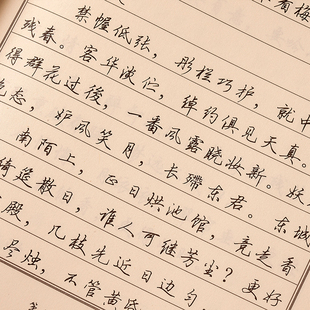 有梅
禁幄低张，彤栏巧护，就中
残春。客华淡伫，绰约俱见天真。
得群花过後，一番风露晓妆新。妖
态，妒风笑月，长殢东君。东城
南陌上，正日烘池馆，竞走香
绮筵散日，谁人可继芳尘？更好
殿，几枝先近日边匀
尽烛，不管黄昏